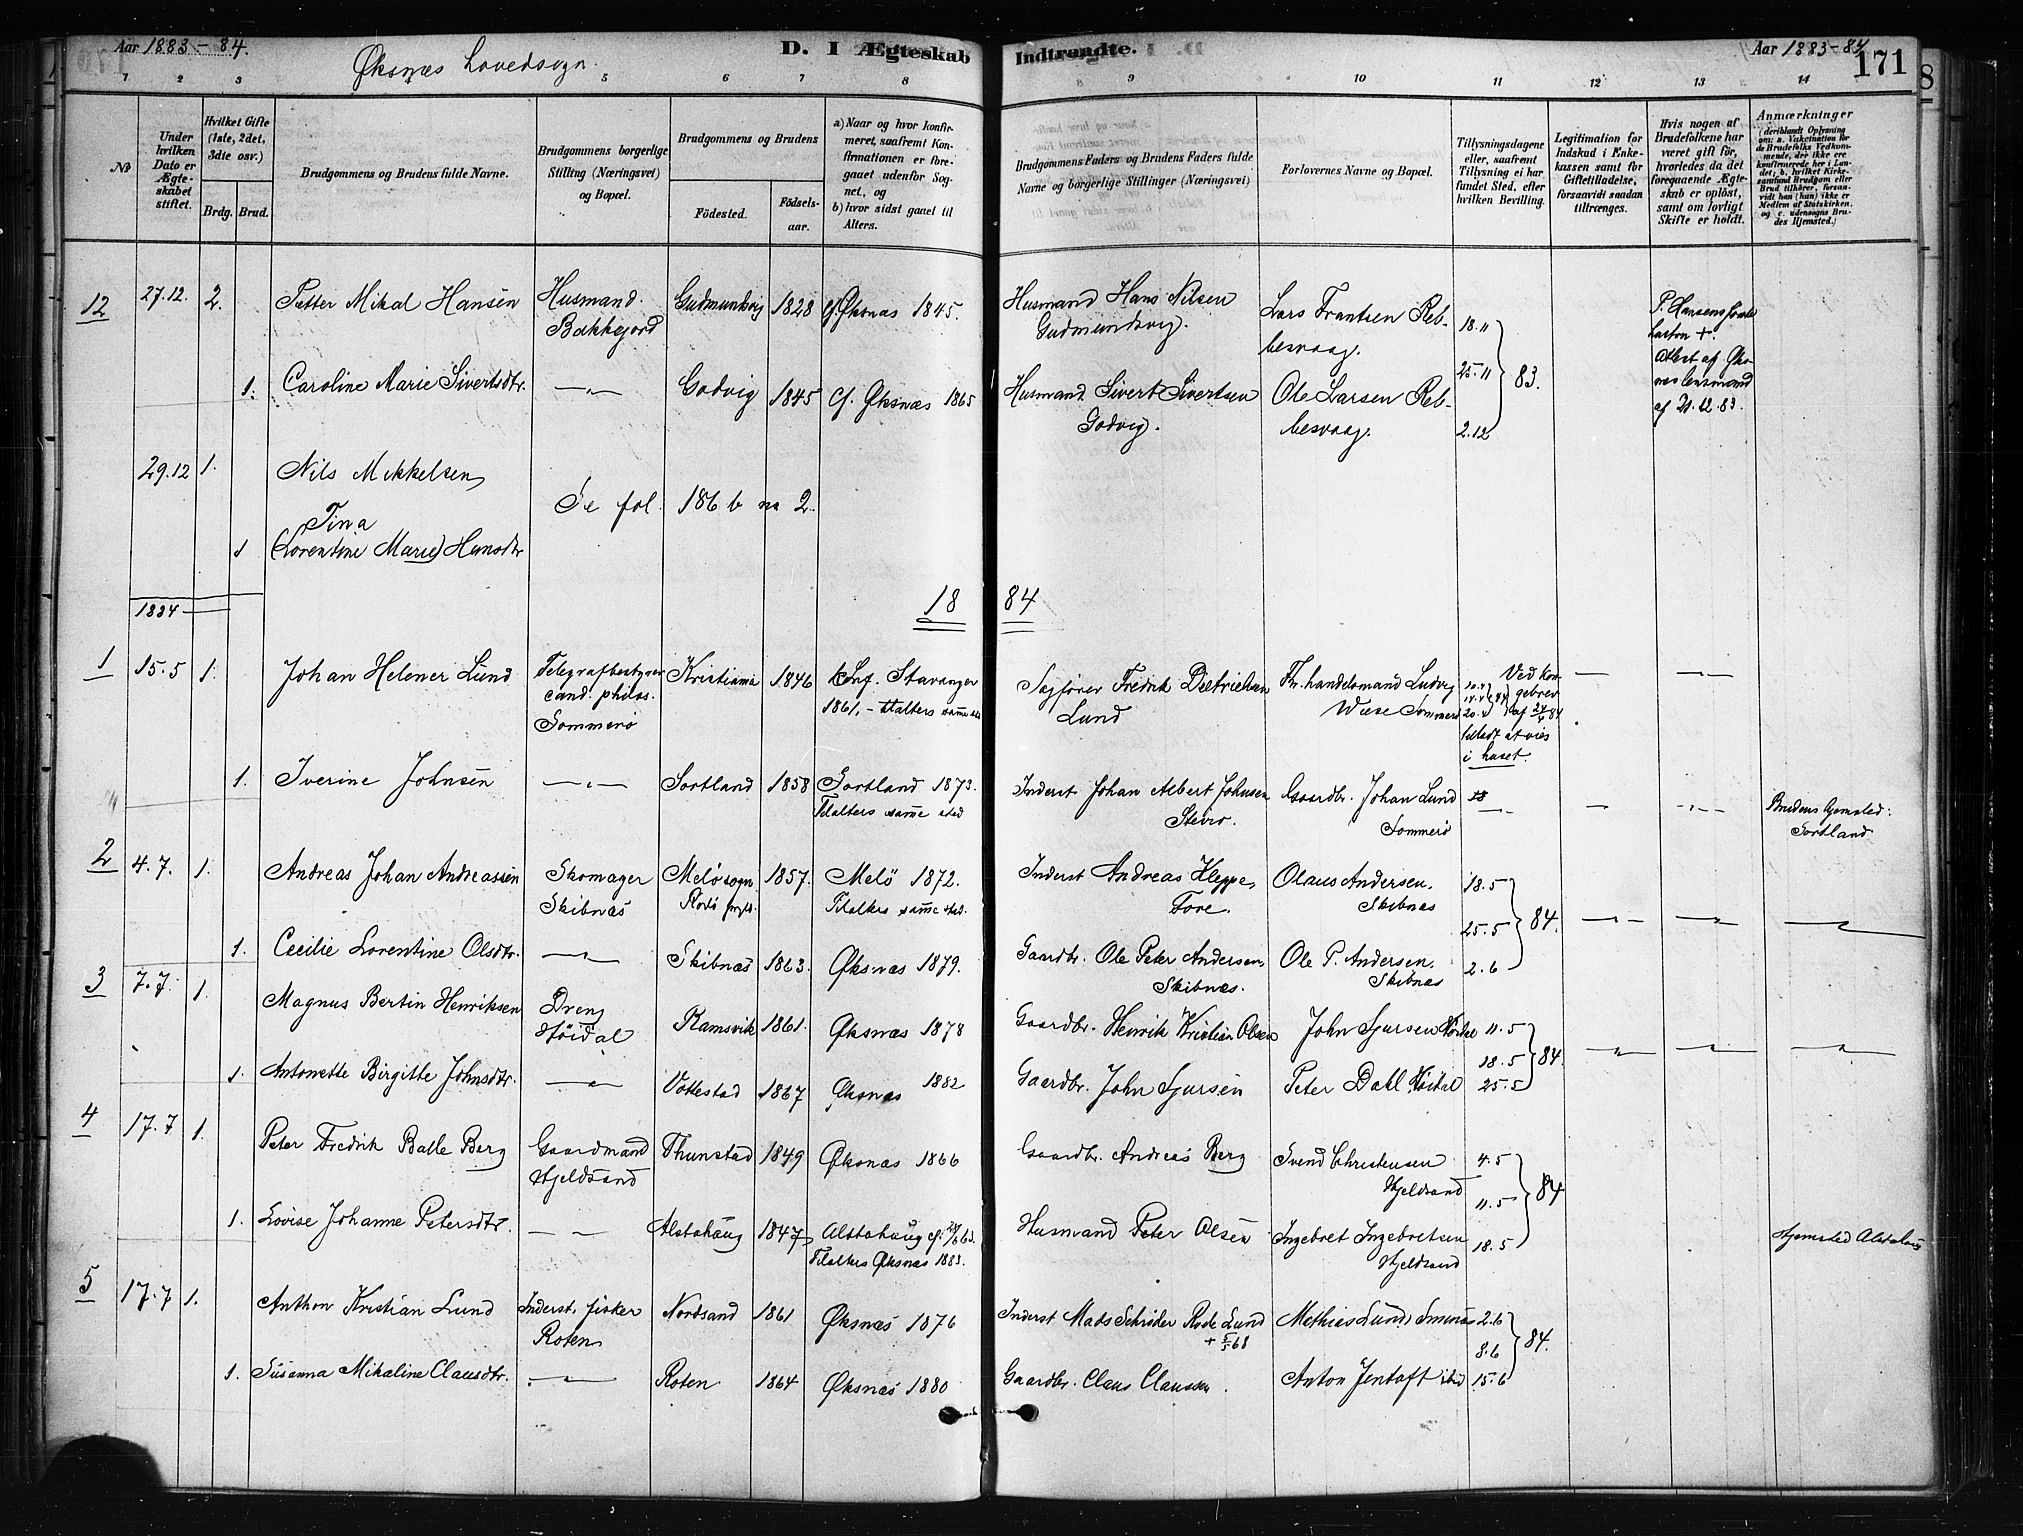 Aar 1883-84. Øksnæs Hovedsogn. D. I Ægteskab Indtraadte. Aar 1883-84 171
1 2 3 5 6 7 8 9 10 11 12 13 14
No
Under hvilken Dato er Ægteskabet stiftet.
Hvilket Gifte (1ste, 2det, 3die osv.)
Brdg. Brud.
Brudgommens og Brudens fulde Navne.
Brudgommens borgerlige Stilling (Næringsvei) og Bopæl.
Brudgommens og Brudens
Födested. Födsels-aar.
a) Naar og hvor konfirmeret, saafremt Konfirmationen er foregaaet udenfor Sognet, og
b) hvor sidst gaaet til Alters.
Brudgommens Faders og Brudens Faders fulde Navne og borgerlige Stillinger (Næringsvei)
Forlovernes Navne og Bopæl.
Tillysningsdagene eller, saafremt Tillysning ei har fundet Sted, efter hvilken Bevilling.
Legitimation for Indskud i Enkekassen samt for Giftetilladelse, forsaavidt saadan tiltrænges.
Hvis nogen af Brudefolkene har været gift før, hvorledes da det foregaaende Ægteskab er oplöst, samt om lovligt Skifte er holdt.
Anmærkninger
(deriblandt Oplysning om: a. Vakcination for de Brudefolks Vedkommende, der ikke ere konfirmerede her i Landet; b. hvilket Kirkesamfund Brudgom eller Brud tilhörer, forsaavidt han (hun) ikke er Medlem af Statskirken, og c. udensogns Brudes Hjemsted.)
12 27.12. 2. Petter Mikal Hansen Husmand Bakkejord Gudmundsvig 1828 cf. Øksnæs 1845. Husmand Hans Nilsen Gudmundsvig. Lars Frantsen Rebbesvaag. 18.11
P. Hansens + Attest af Øksnæs lensmand af 21.12.83.
1. Caroline Marie Sivertsdtr. —"— Godvig 1845 cf. Øksnæs 1865 Husmand Sivert Sivertsen Godvig. Ole Larsen Rebbesvaag. 25.11 2.12 83.
29.12 1. Nils Mikkelsen
Se fol. 186 b no 2.
Tina
1 (Lorentine Marie) Hansdtr
1884 18 84
1 15.5 1. Johan Helener Lund Telegrafbestyrer cand. philos. Sommerø Kristiania 1846 Conf. Stavanger 1861, - tilalters samme sted Sagfører Fredrik Dietrichson Lund Fhr. handelsmand Ludvig Wiese Sommerø 20.4 Ved Kongebrev af 24/4 84 tilladt at vies i huset. — —"—
1. Iverine Johnsen —"— Sortland 1858 Sortland 1873. Tilalters samme sted Inderst Johan Albert Johnsen Stevro. Gaardbr. Johan Lund Sommerø —"— — —"— Brudens hjemsted: Sortland
2 4.7. 1. Andreas Johan Andreassen Skomager Skibnæs Melø sogn 1857. Melø 1872. Tilalters samme sted. Inderst Andreas Kleppe, Fore. Olaus Andersen. Skibnæs 18.5
25.5 84. —"— —"— —"—
1. Cecilie Lorentine Olsdtr. —"— Skibnæs 1863. Øksnæs 1879. Gaardbr. Ole Peter Andersen Skibnæs. Ole P. Andersen. Skibnæs 2.6
3 7.7 1. Magnus Bertin Henriksen Dreng Høidal Ramsvik 1861. Øksnæs 1878 Gaardbr. Henrik Kristian Olsen John Sjursen Høidal 11.5
18.5 84. —"— —"— —"—
1. Antonette Birgitte Johnsdtr. —"— Vottestad 1867 Øksnæs 1882 Gaardbr. John Sjursen Peter Dahl Høidal 25.5
4 17.7 1. Peter Fredrik Balle Berg Gaardmand Hjeldsand Thunstad 1849 Øksnæs 1866 Gaardbr. Andreas Berg Svend Christensen Hjeldsand 4.5
11.5 84
1. Lovise Johanne Petersdtr. —"— Alstahaug 1847 Alstahaug cf. Tilalters Øksnæs 1883. Husmand Peter Olsen Ingebret Ingebretsen Hjeldsand 18.5 Hjemsted Alstahaug
5 17.7 1. Anthon Kristian Lund Inderst, fisker Roten Nordsand 1861 Øksnæs 1876 Inderst Mads Schrøder Rode Lund + Mathias Lund, Smines 2.6
8.6 84.
1. Susanna Mikaline Clausdtr. —"— Roten 1864 Øksnæs 1880 Gaardbr. Claus Clausen. Anton Jentoft ibid 15.6